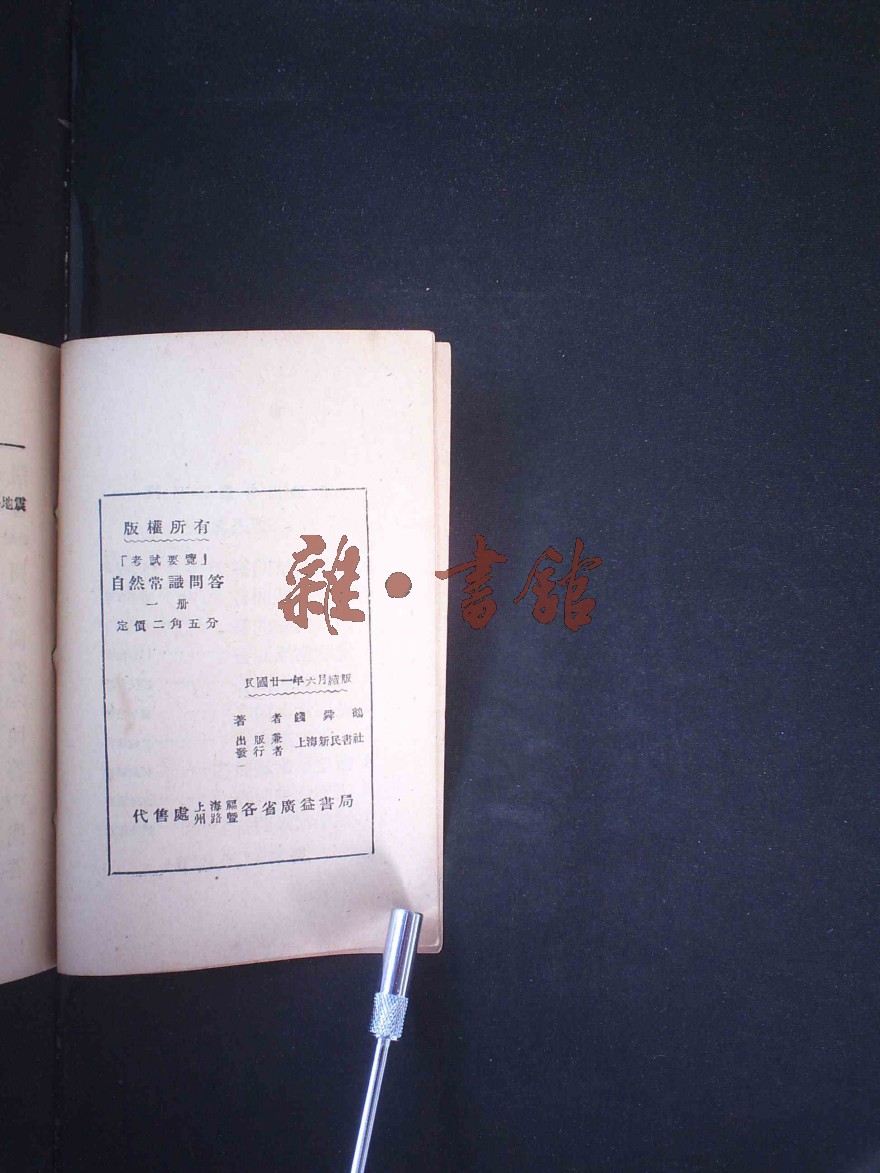 地震
版權所有
「考試要覽」
自然常識問答
一册
定價二角五分
民國廿一年六月續版
著者 錢舜鶴
出版兼發行者 上海新民書社
代售處 上海福州路暨各省廣益書局
雜·書館